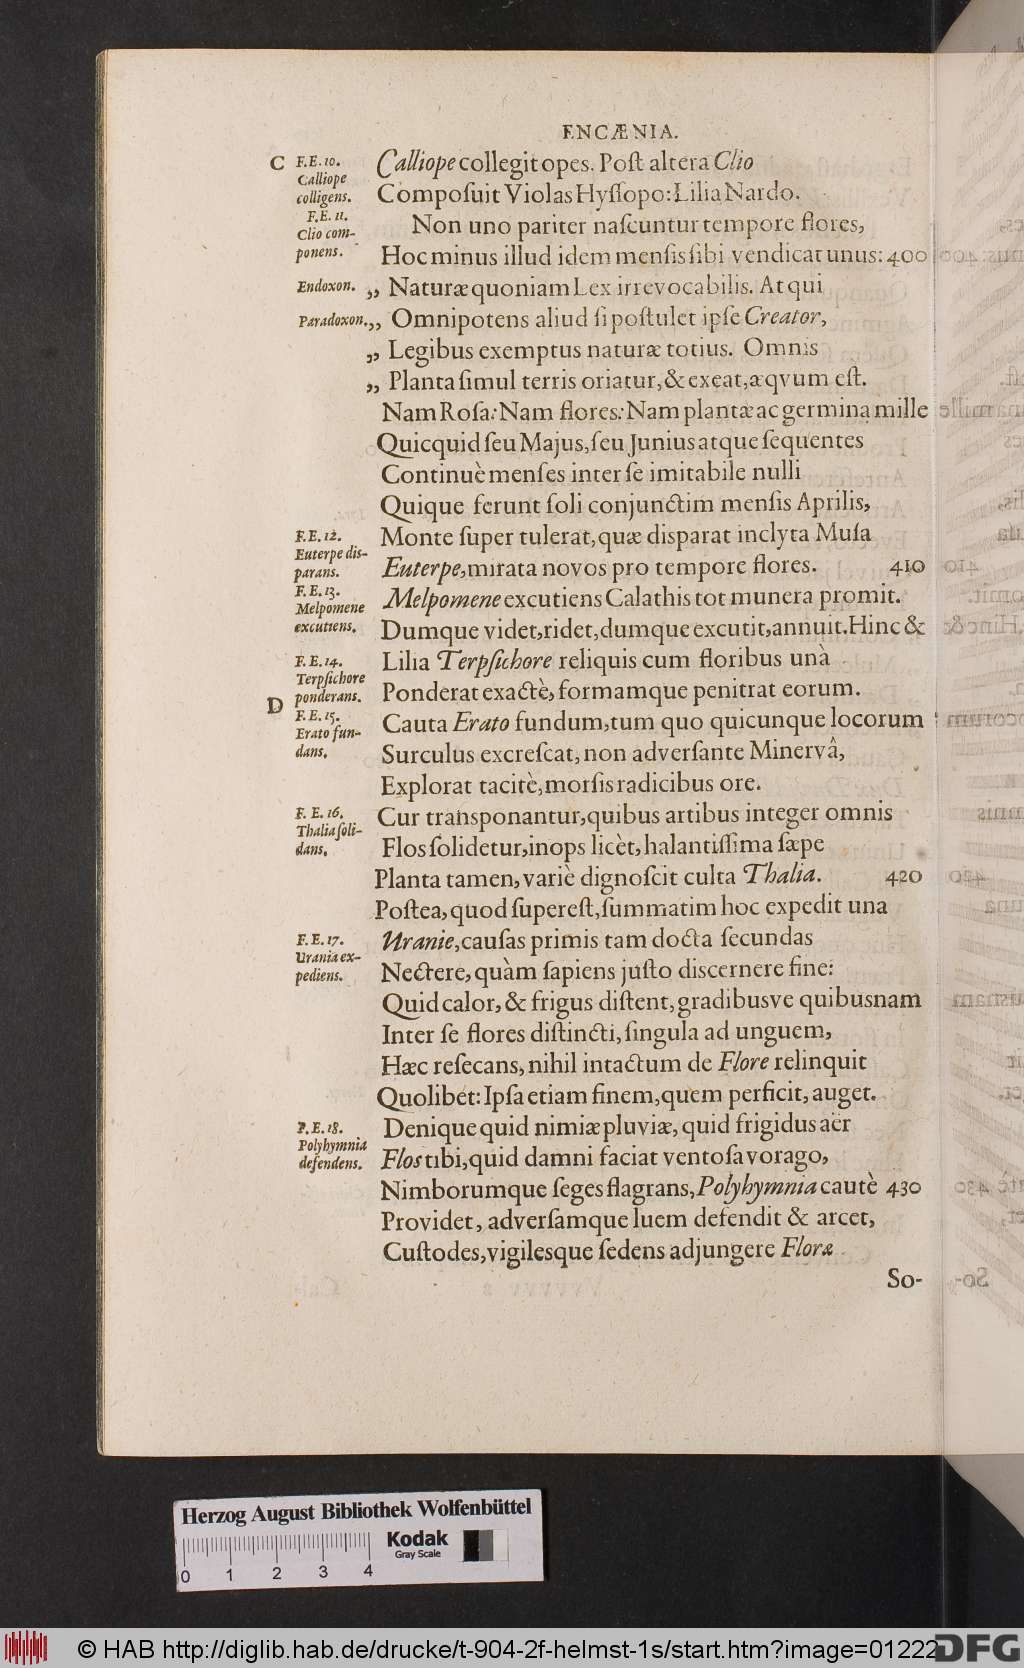 ENCÆNIA.
C F.E.10. Calliope collegit opes. Poſt altera Clio
Calliope
colligens. Compoſuit Violas Hyſſopo: Lilia Nardo.
F.E.11. Non uno pariter naſcuntur tempore flores,
Clio com-
ponens. Hoc minus illud idem menſis ſibi vendicat unus: 400
Endoxon. „ Naturæ quoniam Lex irrevocabilis. At qui
Paradoxon. „ Omnipotens aliud ſi poſtulet ipſe Creator,
„ Legibus exemptus naturæ totius. Omnis
„ Planta ſimul terris oriatur, & exeat, æqvum eſt.
Nam Roſa: Nam flores: Nam plantæ ac germina mille
Quicquid ſeu Majus, ſeu Junius atque ſequentes
Continuè menſes inter ſe imitabile nulli
Quique ferunt ſoli conjunctim menſis Aprilis,
F.E.12. Monte ſuper tulerat, quæ disparat inclyta Muſa
Euterpe dis-
parans. Euterpe, mirata novos pro tempore flores. 410
F.E.13. Melpomene excutiens Calathis tot munera promit.
Melpomene
excutiens. Dumque videt, ridet, dumque excutit, annuit. Hinc &
F.E.14. Lilia Terpſichore reliquis cum floribus unà
Terpſichore
D ponderans. Ponderat exactè, formamque penitrat eorum.
F.E.15. Cauta Erato fundum, tum quo quicunque locorum
Erato fun-
dans. Surculus excreſcat, non adverſante Minervâ,
Explorat tacitè, morſis radicibus ore.
F.E.16. Cur transponantur, quibus artibus integer omnis
Thalia ſoli-
dans. Flos ſolidetur, inops licèt, halantiſſima ſæpe
Planta tamen, variè dignoſcit culta Thalia. 420
Poſtea, quod ſupereſt, ſummatim hoc expedit una
F.E.17. Uranie, cauſas primis tam docta ſecundas
Urania ex-
pediens. Nectere, quàm ſapiens juſto discernere fine:
Quid calor, & frigus diſtent, gradibusve quibusnam
Inter ſe flores diſtincti, ſingula ad unguem,
Hæc reſecans, nihil intactum de Flore relinquit
Quolibet: Ipſa etiam finem, quem perficit, auget.
F.E.18. Denique quid nimiæ pluviæ, quid frigidus aër
Polyhymnia
defendens. Flos tibi, quid damni faciat ventoſa vorago,
Nimborumque ſeges flagrans, Polyhymnia cautè 430
Providet, adverſamque luem defendit & arcet,
Cuſtodes, vigilesque ſedens adjungere Floræ
So-
Herzog August Bibliothek Wolfenbüttel
Kodak
Gray Scale
0 1 2 3 4
© HAB http://diglib.hab.de/drucke/t-904-2f-helmst-1s/start.htm?image=01222
DFG